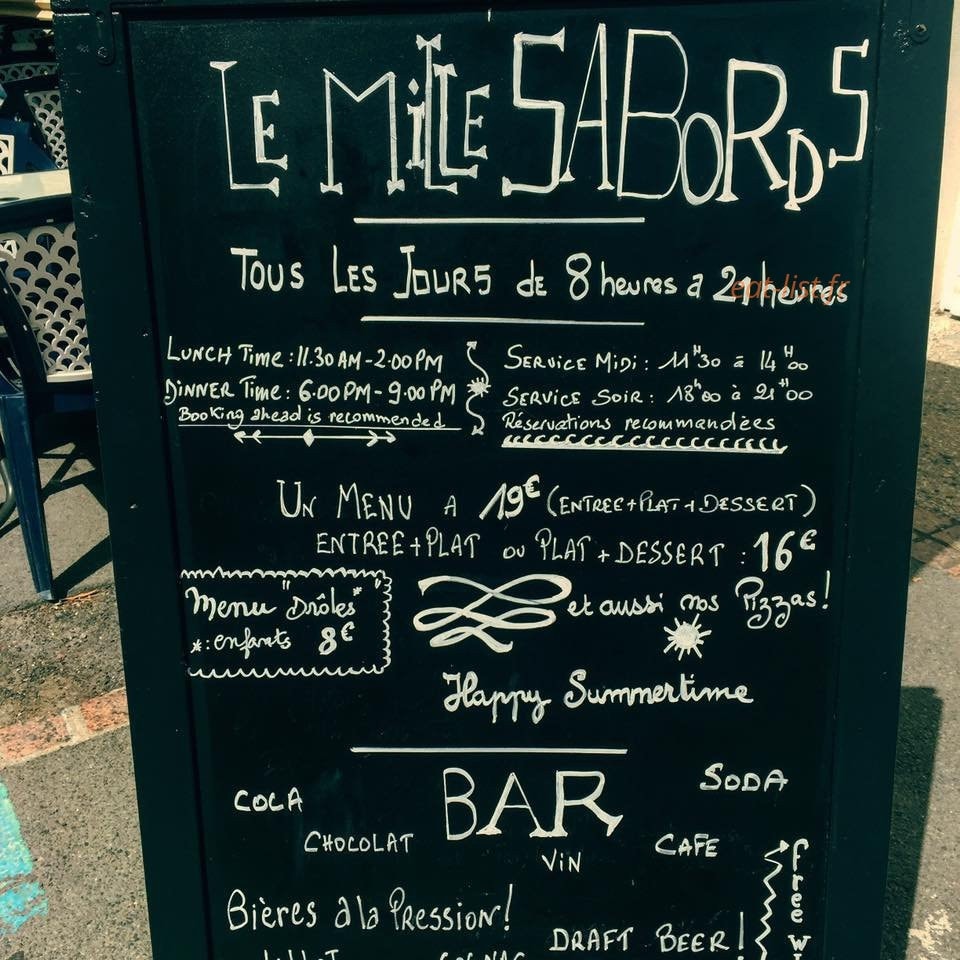 LE MiLLE SABORDS
TOUS LES JOURS de 8 heures a 21 heures
eat-list.fr
LUNCH Time : 11.30 AM - 2.00 PM
DINNER Time : 6.00 PM - 9.00 PM
Booking ahead is recommended
SERVICE MiDi : 11H30 à 14H00
SERVICE SOIR : 18H00 à 21H00
Réservations recommandées
UN MENU A 19€ (ENTREE+PLAT+DESSERT)
ENTREE+PLAT ou PLAT+DESSERT : 16€
Menu "Drôles*"
*: enfants 8€
et aussi nos Pizzas!
Happy Summertime
BAR
COCA
SODA
CHOCOLAT
CAFE
ViN
Bières à la Pression!
DRAFT BEER!
free